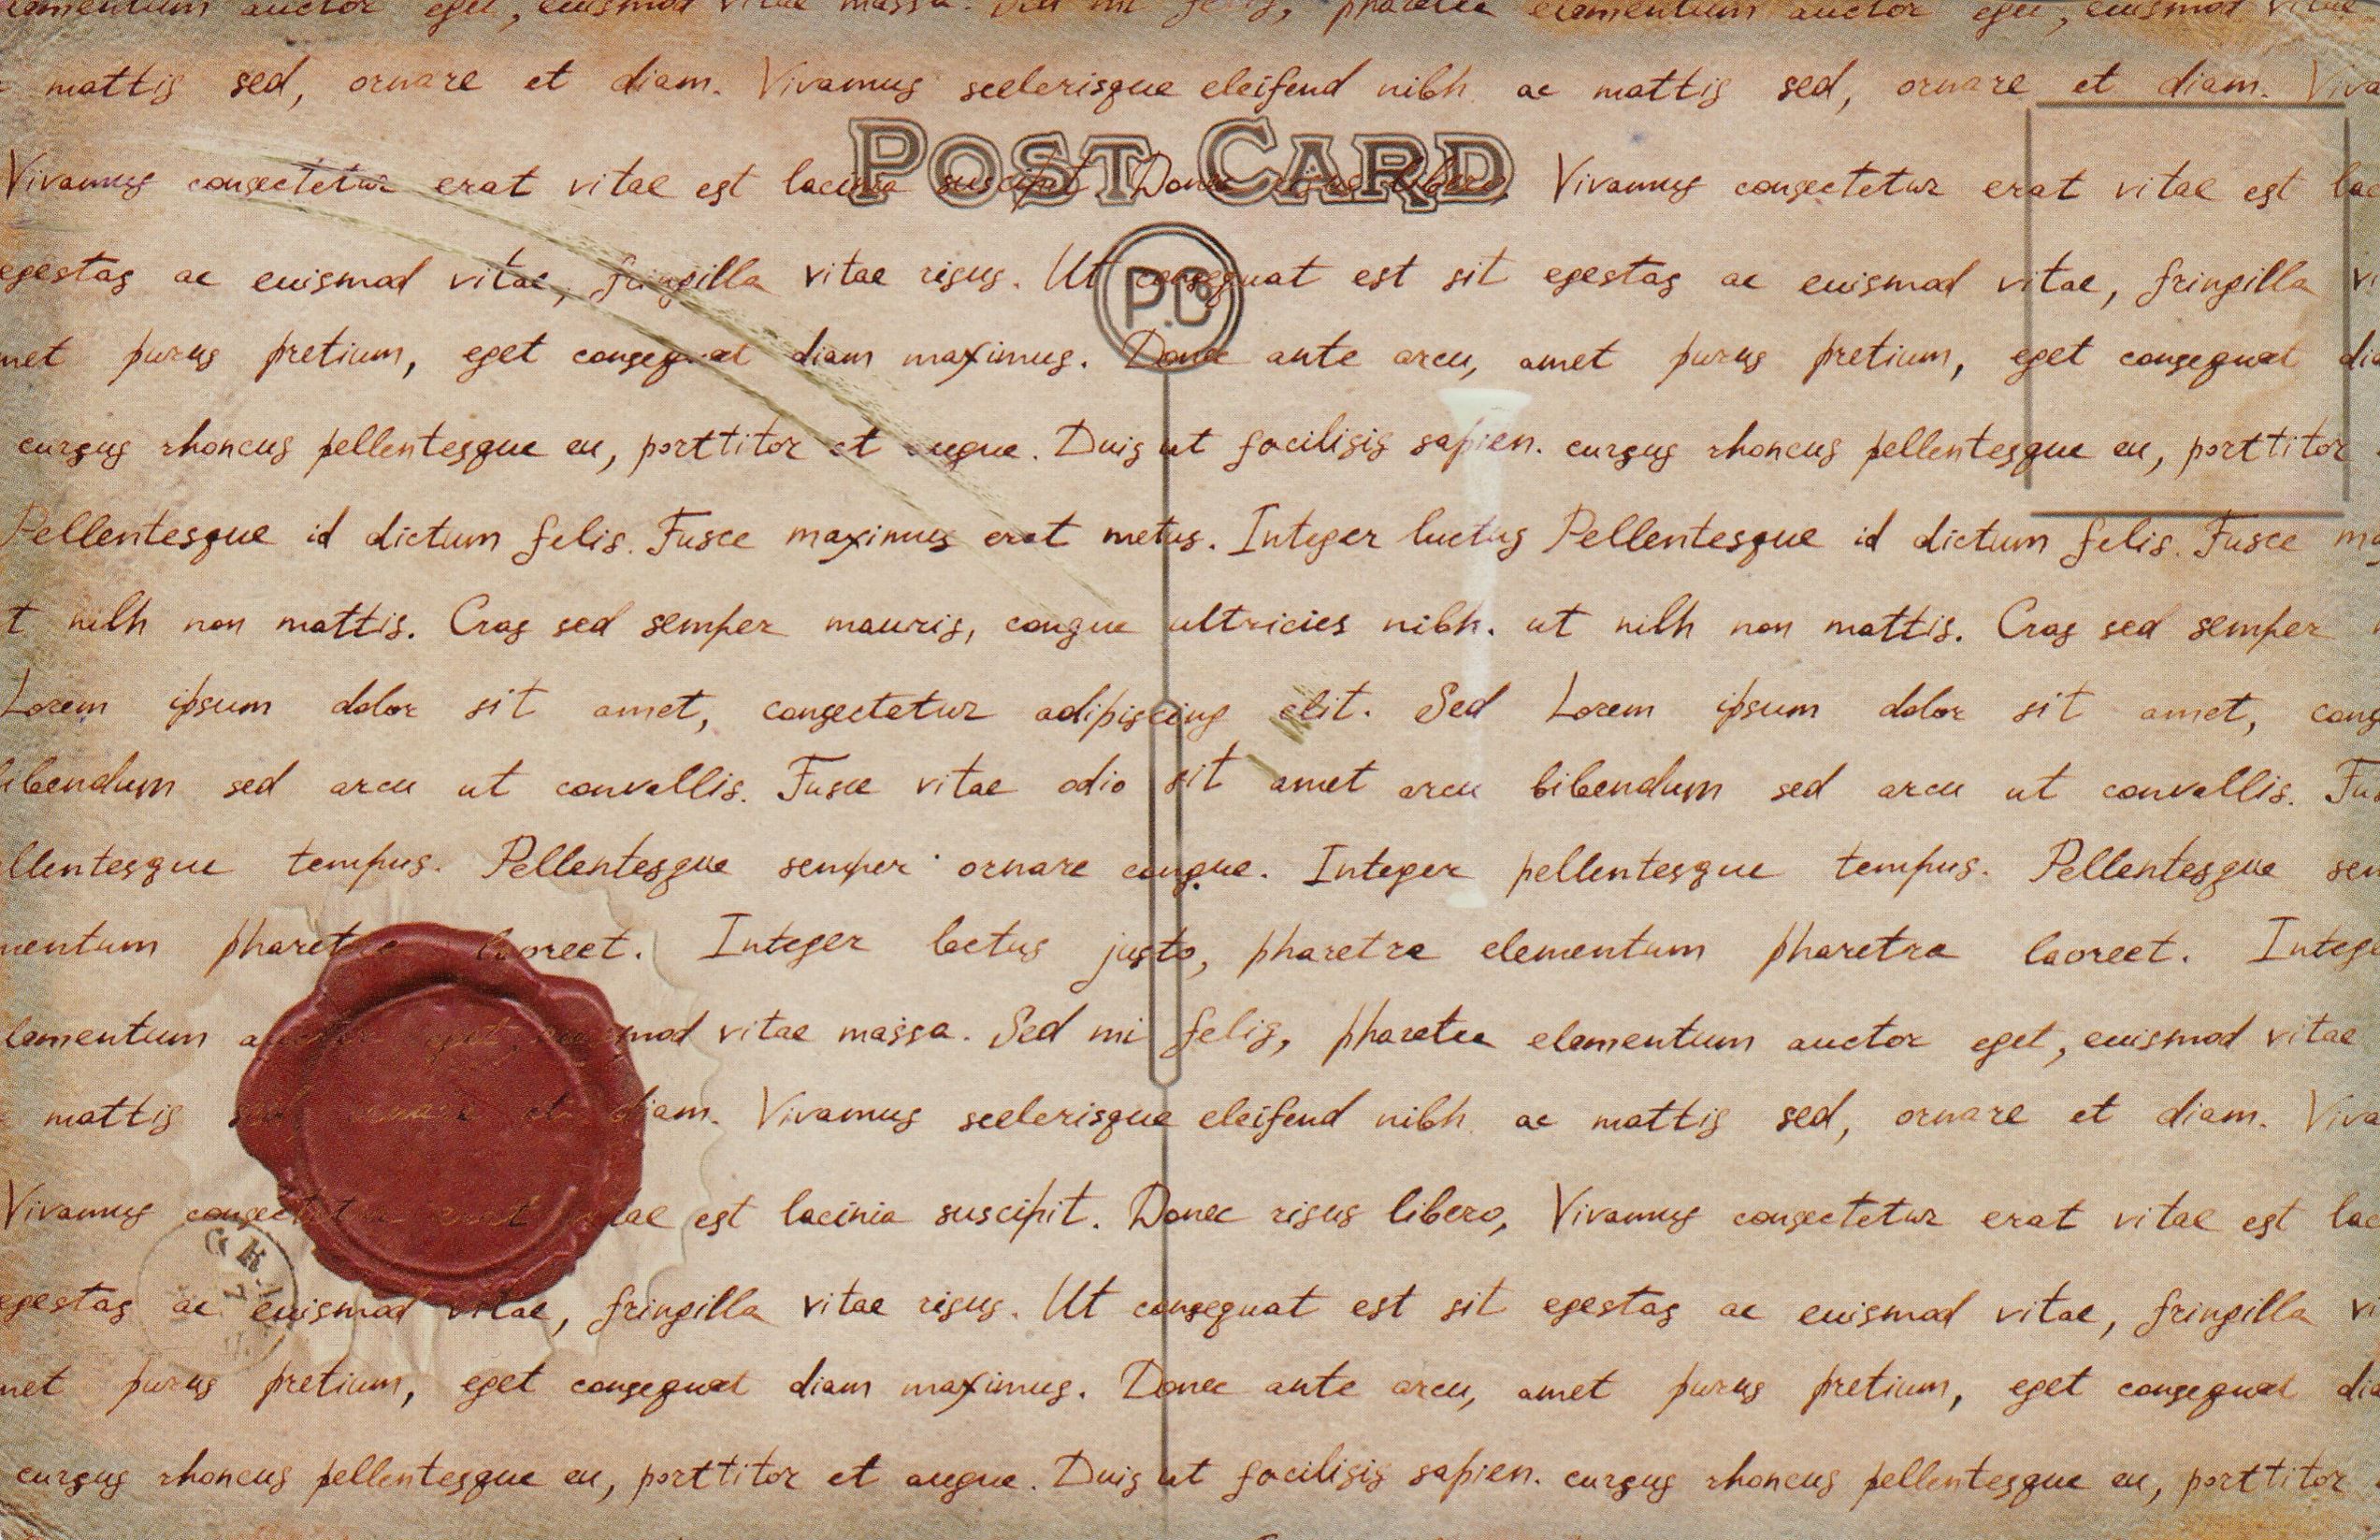 elementum auctor eget, euismod vitae massa. Sed mi felis, pharetee elementum auctor eget, euismod vitae
mattis sed, ornare et diam. Vivamus scelerisque eleifend nibh. ac mattis sed, ornare et diam. Viva
POST CARD
Vivamus consectetur erat vitae est lacinia suscipit. Donec risus libero, Vivamus consectetur erat vitae est lac
egestas ac euismod vitae, fringilla vitae risus. Ut consequat est sit egestas ac euismod vitae, fringilla vi
met purus pretium, eget consequat diam maximus. Donec ante arcu, amet purus pretium, eget consequat dia
cursus rhoncus pellentesque eu, porttitor et augue. Duis ut facilisis sapien. cursus rhoncus pellentesque eu, porttitor
Pellentesque id dictum felis. Fusce maximus erat metus. Integer luctus Pellentesque id dictum felis. Fusce ma
t nibh non mattis. Cras sed semper mauris, congue ultricies nibh. ut nibh non mattis. Cras sed semper
Lorem ipsum dolor sit amet, consectetur adipiscing elit. Sed Lorem ipsum dolor sit amet, cons
ibendum sed arcu ut convallis. Fusce vitae odio sit amet arcu bibendum sed arcu ut convallis. Fus
llentesque tempus. Pellentesque semper ornare congue. Integer pellentesque tempus. Pellentesque sem
mentum pharetra laoreet. Integer lectus justo, pharetra elementum pharetra laoreet. Intege
lementum auctor eget, euismod vitae massa. Sed mi felis, pharetee elementum auctor eget, euismod vitae
mattis sed, ornare et diam. Vivamus scelerisque eleifend nibh. ac mattis sed, ornare et diam. Viva
Vivamus consectetur erat vitae est lacinia suscipit. Donec risus libero, Vivamus consectetur erat vitae est lac
egestas ac euismod vitae, fringilla vitae risus. Ut consequat est sit egestas ac euismod vitae, fringilla vi
met purus pretium, eget consequat diam maximus. Donec ante arcu, amet purus pretium, eget consequat dia
cursus rhoncus pellentesque eu, porttitor et augue. Duis ut facilisis sapien. cursus rhoncus pellentesque eu, porttitor